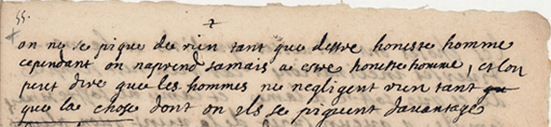 55.
on ne se pique de rien tant que destre honeste homme
cependant on naprend jamais a estre honeste homme, et lon
peut dire que les hommes ne negligent rien tant que
que la chose dont on ils se piquent davantage